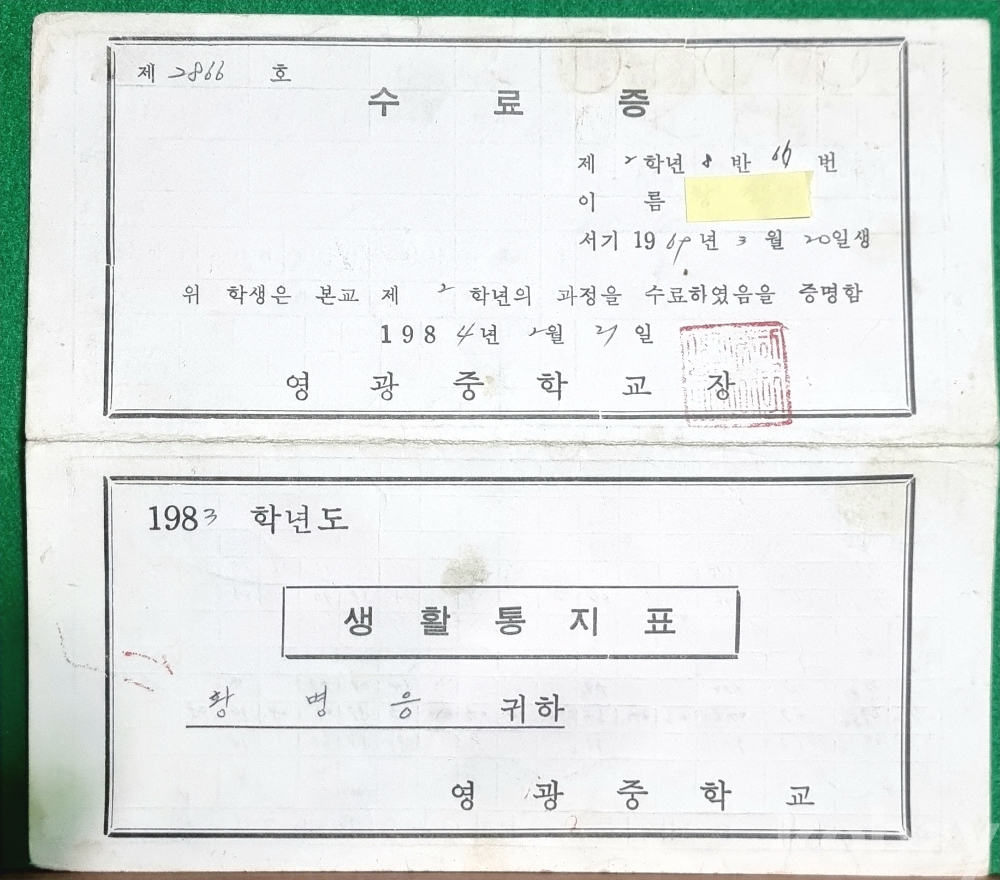 제 2866 호
수 료 증
제 2 학년 8 반 66 번
이 름
서기 1969년 3 월 20일생
위 학생은 본교 제 2 학년의 과정을 수료하였음을 증명함
1984년 2월 21일
영 광 중 학 교 장
1983 학년도
생 활 통 지 표
황 명 응 귀하
영 광 중 학 교